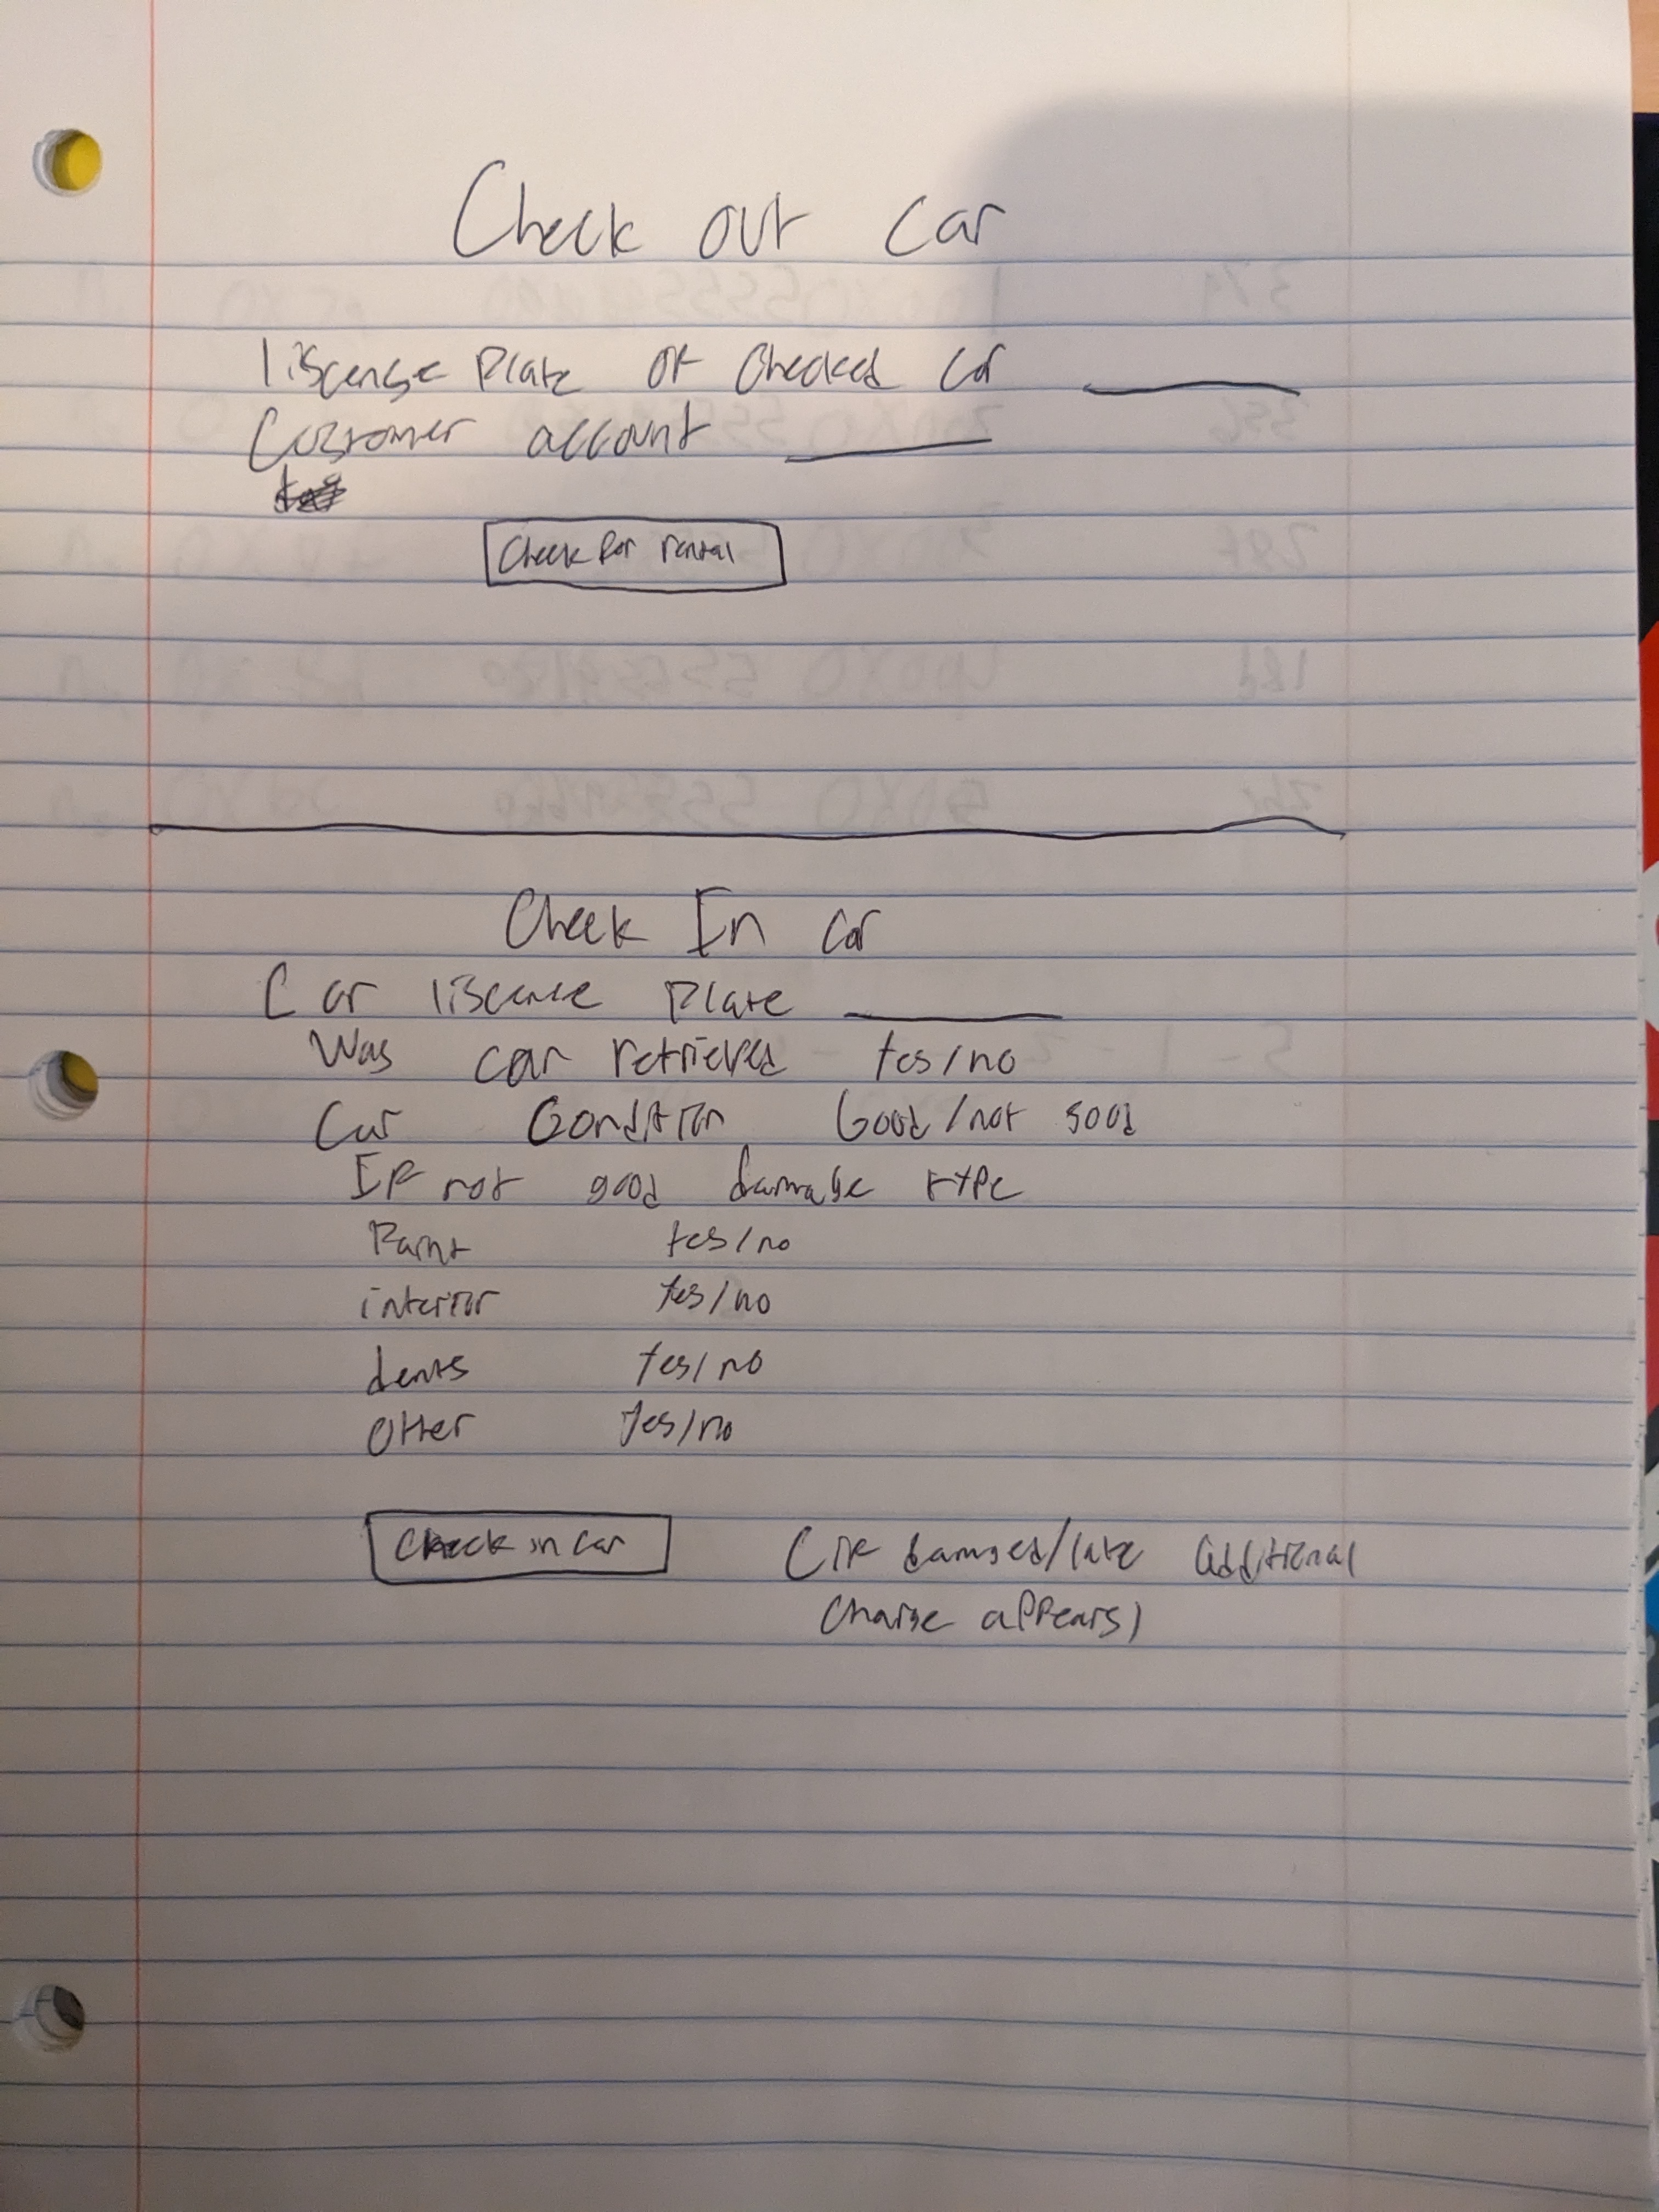 Check out Car
liscense Plate of Checked Car
Customer account
Check for rental
Check In Car
Car liscense Plate
Was car retrieved Yes/no
Car Condition Good/not good
If not good damage type
Paint Yes/no
interior Yes/no
dents Yes/no
Other Yes/no
Check in car
(if damged/late additional
charge appears)